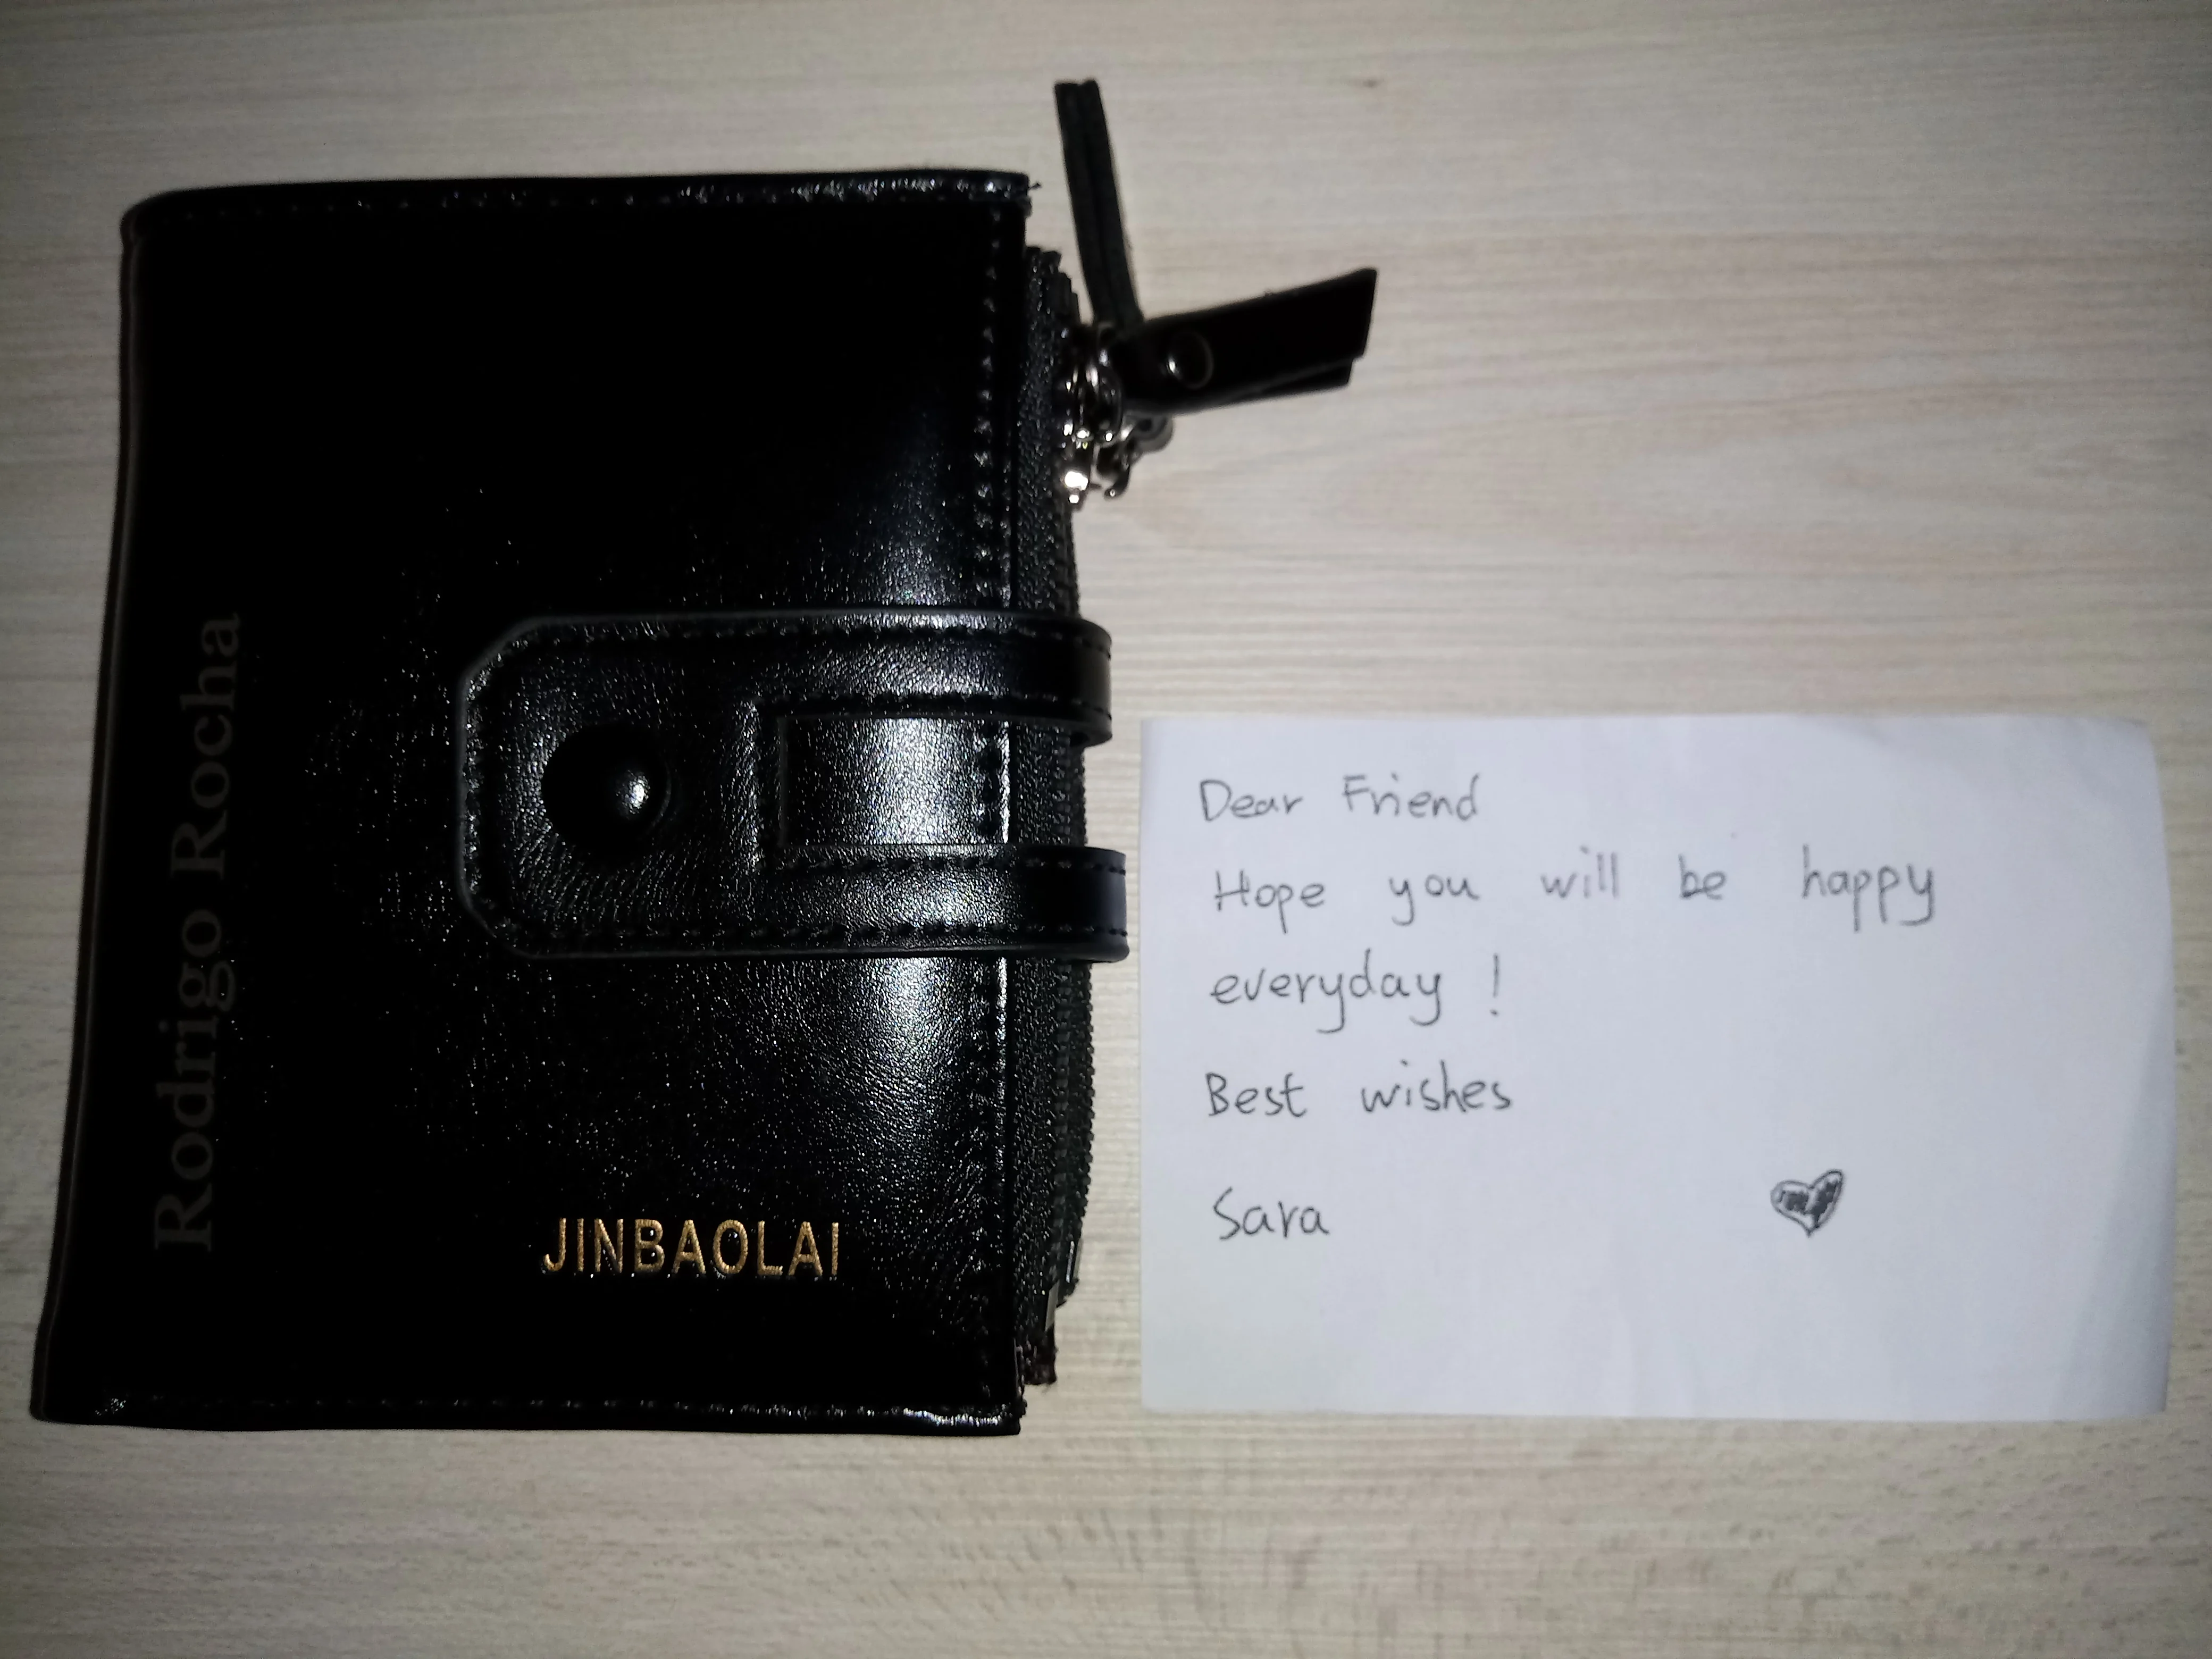 Rodrigo Rocha
JINBAOLAI
Dear Friend
Hope you will be happy
everyday !
Best wishes
Sara